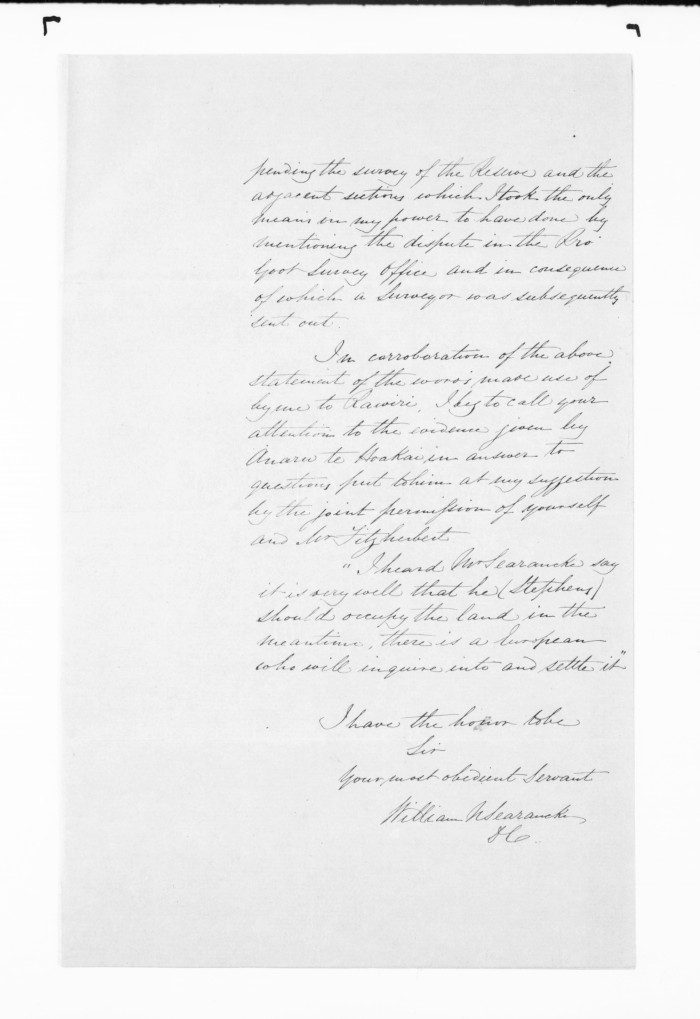 pending the survey of the Reserve and the
adjacent sections which I took the only
means in my power to have done by
mentioning the dispute in the Pro
Govt Survey Office and in consequence
of which a Surveyor was subsequently
sent out.
In corroboration of the above
statement of the words made use of
by me to Rawiri, I beg to call your
attention to the evidence given by
Anaru te Hoakai in answer to
questions put to him at my suggestion
by the joint permission of yourself
and Mr Fitzherbert
"I heard Mr Searancke say
it is very well that he (Stephens)
should occupy the land in the
meantime, there is a European
who will inquire into and settle it"
I have the honor to be
Sir
Your most obedient Servant
William N Searancke